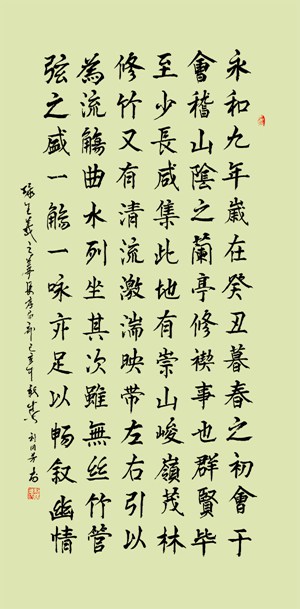 永和九年歲在癸丑暮春之初會于
會稽山陰之蘭亭修禊事也群賢毕
至少長咸集此地有崇山峻嶺茂林
修竹又有清流激湍映帶左右引以
為流觴曲水列坐其次雖無絲竹管
弦之盛一觴一咏亦足以暢叙幽情
王羲之